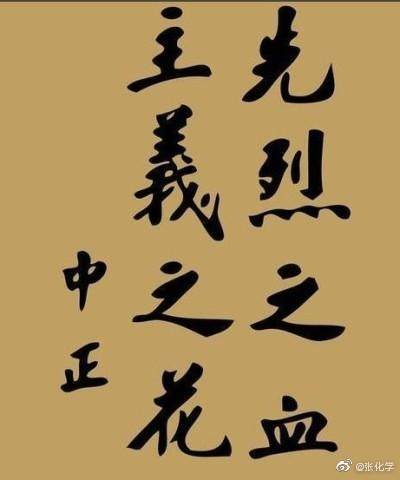 先烈之血
主義之花
中正
@张化学